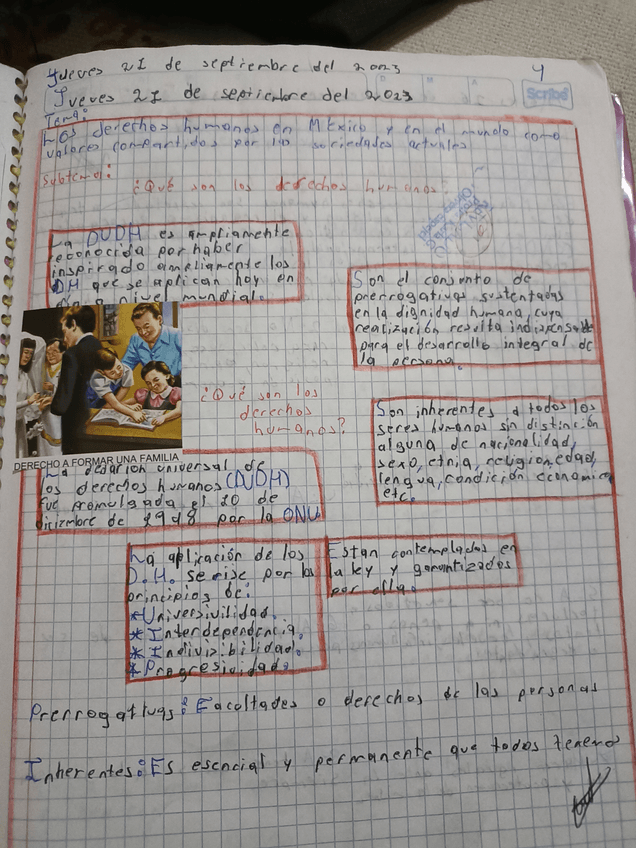 Jueves 21 de septiembre del 2023
4
Jveves 21 de septiembre del 2023
Scribe
Tema:
Los derechos humanos en México y en el mundo como
valores compartidos por las sociedades actuales
Subtema:
¿Qué son los derechos humanos?
La DUDH es ampliamente
reconocida por haber
inspirado ampliamente los
DH que se aplican hoy en
día a nivel mundial.
Son el conjunto de
prerrogativas sustentadas
en la dignidad humana, cuya
realización resulta indispensable
para el desarrollo integral de
la persona.
¿Qué son los
derechos
humanos?
Son inherentes a todos los
seres humanos sin distinción
alguna de nacionalidad,
sexo, etnia, religion, edad,
lengua, condición economica
etc.
DERECHO A FORMAR UNA FAMILIA
La universal de
los derechos humanos (DUDH)
fue promulgada el 10 de
diciembre de 1948 por la ONU
La aplicación de los
D.H. se rige por los
principios de:
*Universivilidad.
*Interdependencia.
*Indivisibilidad.
*Progresividad.
Estan contemplados en
la ley y garantizados
por ella.
Prerrogativas: Facultades o derechos de las personas
Inherentes: Es esencial y permanente que todos tenemo